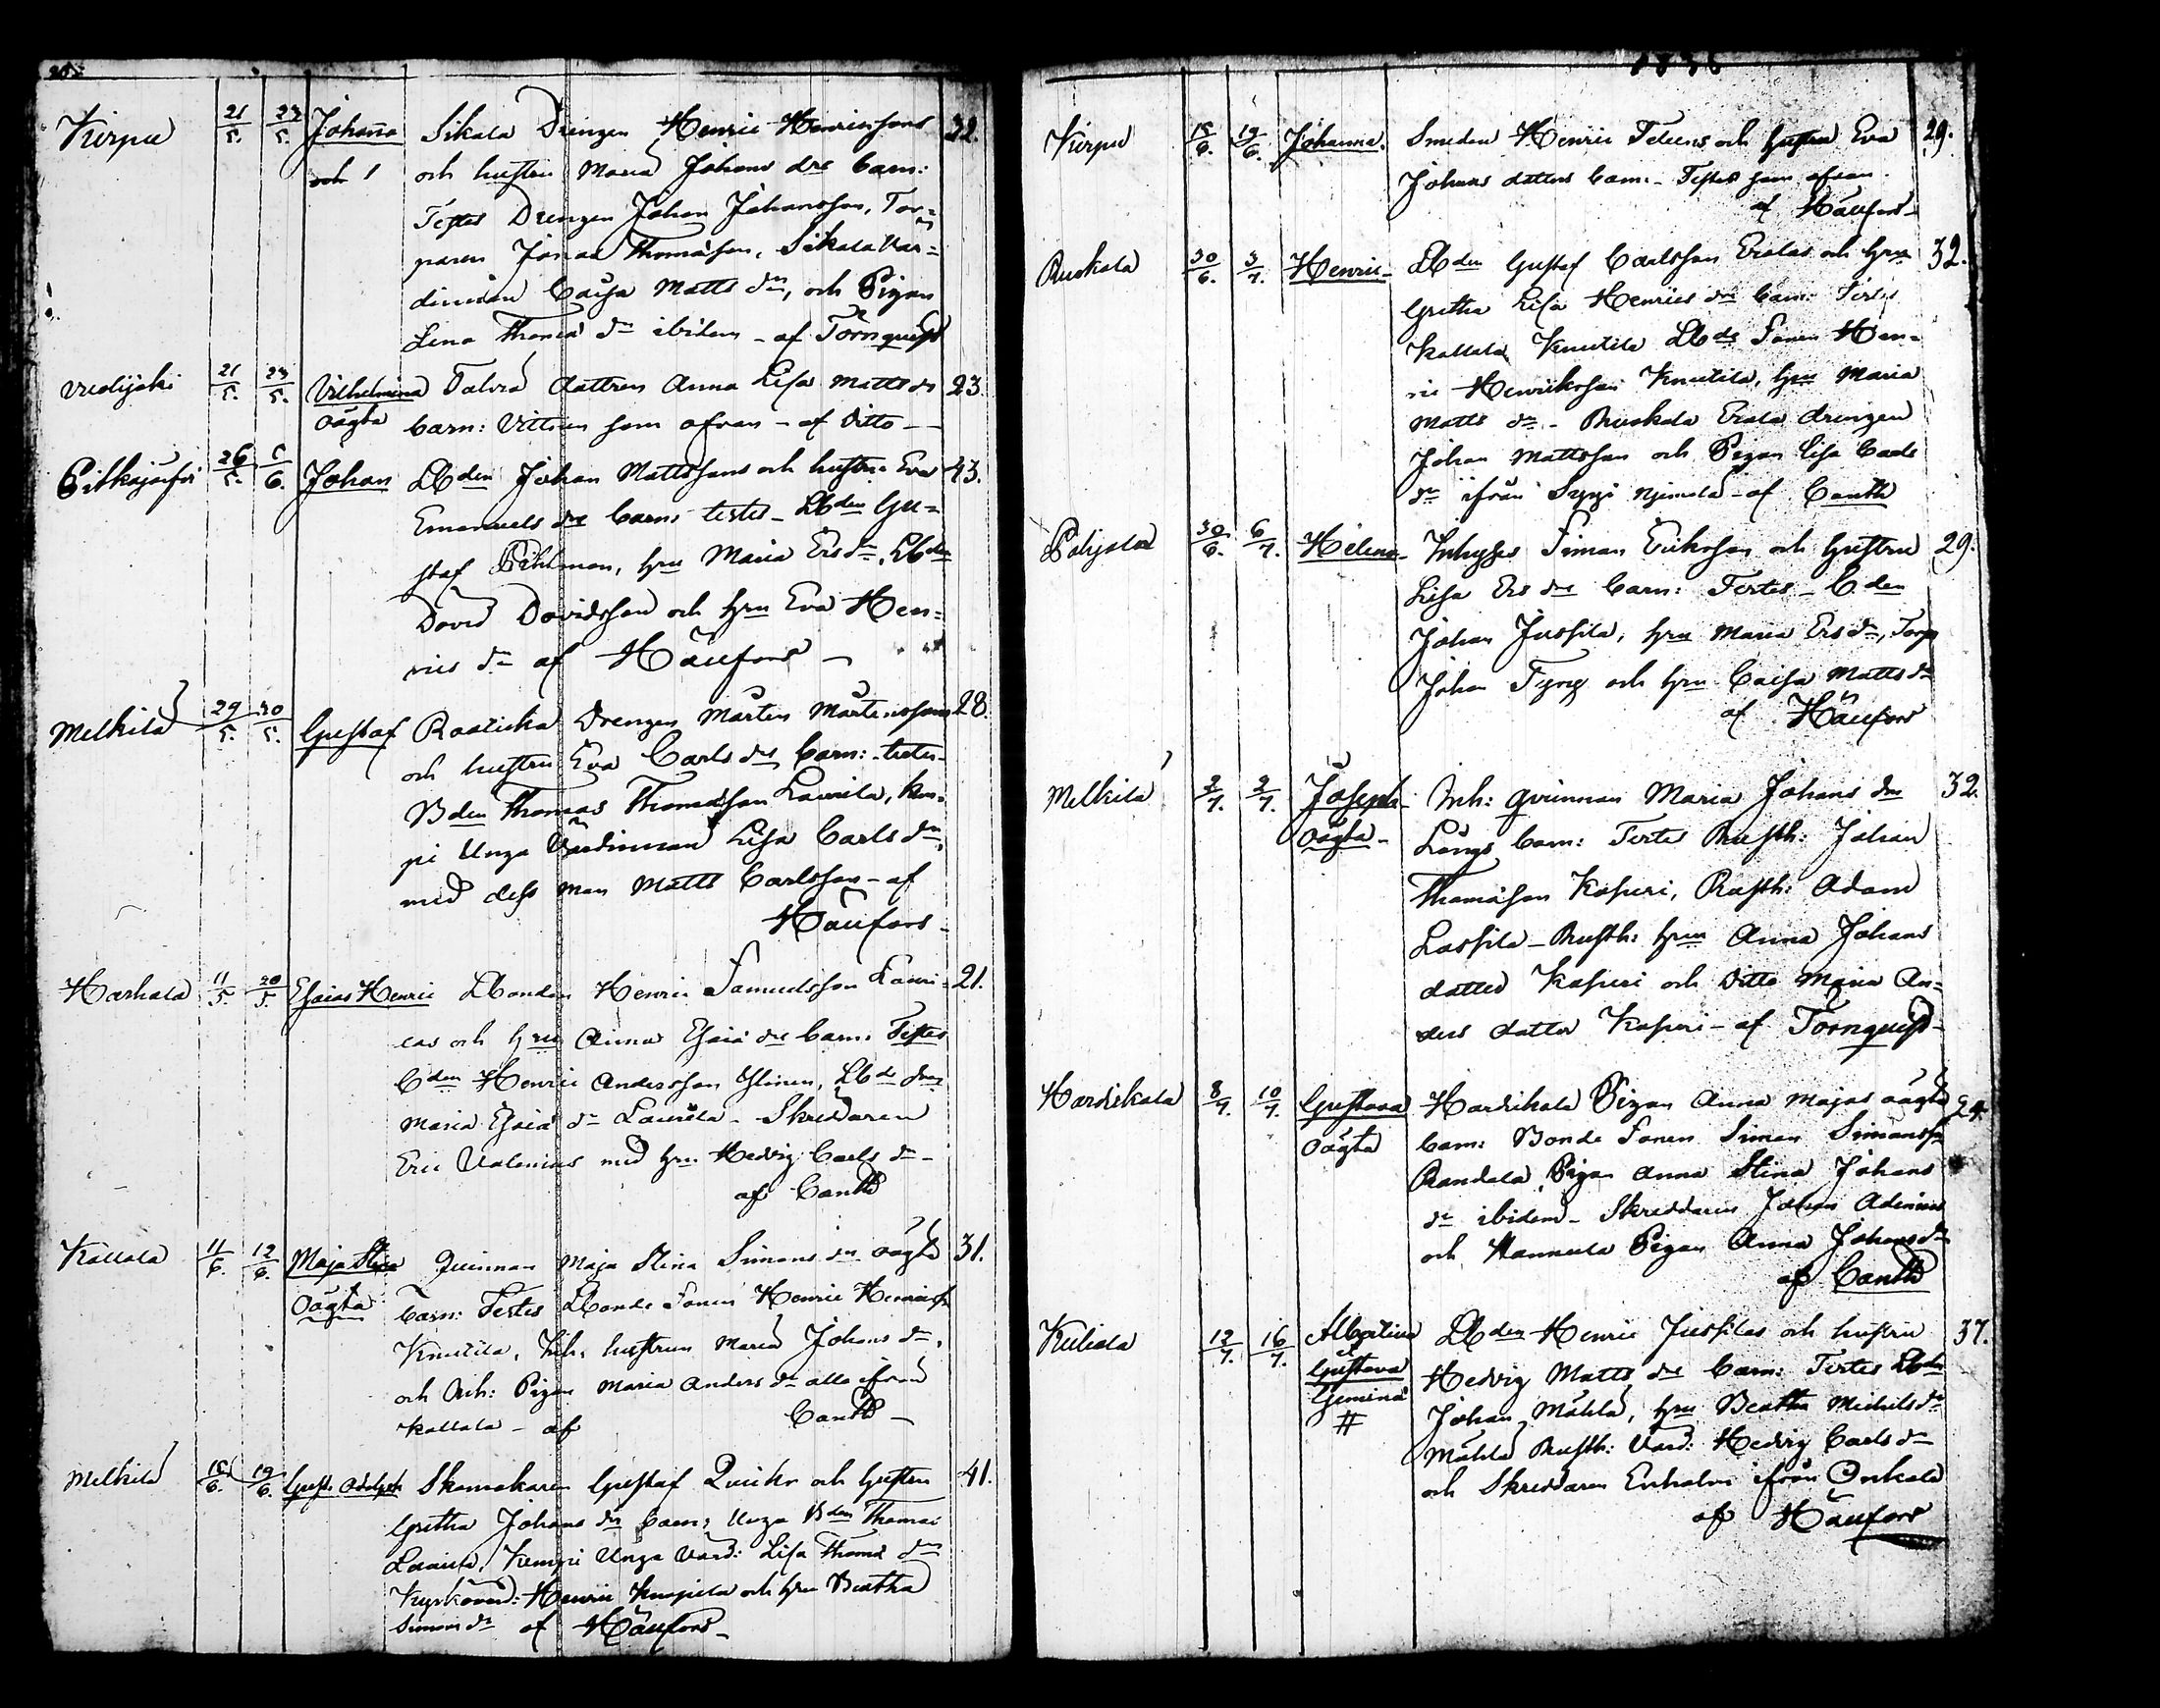 Kirpu 21/5. 23/5. Johanna Sikala Drengen Henric Henricssons 32.
och 1 och hustru Maria Johans dr barn:
Testes Drengen Johan Johansson, Tor=
paren Jonas Thomasson, Sikala Vär=
dinnan Caisa Matts dr, och Pigan
Lena Thomä dr ibidem - af Törnquist
21/5. 23/5. Vilhelmina Talvia dottren Anna Lisa Matts dr 23.
Oägta barn: Vittnen som ofvan - af Ditto -
Pitkäjärfvi 26/5. 5/6. Johan Lbden Johan Mattssons och hustru Eva 43.
Emanuels dr barn testes - Lbden Gu=
staf Pihlman, hru Maria Ersdr, Lbden
David Davidsson och hru Eva Hen=
rics dr af Häufors -
Melkilä 29/5. 30/5. Gustaf Raaticka Drengen Mårten Mårtenssons 28.
och hustru Eva Carls dr barn: testes
Bden Thomas Thomasson Laurila,
Unga Värdinnan Lisa Carls dr,
med dess man Matts Carlsson - af
Häufors -
Harhala 11/5. 20/5. Esaias Henric Lbonden Henric Samuelsson Lauri= 21.
las och hru Anna Esaiä dr barn. Testes
Cden Henric Andersson Ylinen, Lbde
Maria Esaiä dr Laurila - Skreddaren
Eric Valenius med hru Hedvig Carls dr -
af Canth
Kallala 11/6. 12/6. Maja Stina Qvinnan Maja Stina Simons dr oägta 31.
Oägta barn: Testes Lbonde Sonen Henric Henricss
Knutila, Inh. hustrun Maria Johans dr,
och Inh: Pigan Maria Anders dr alla ifrån
Kallala - af Canth -
Melkilä 18/6. 19/6. Gust. Adolph Skomakaren Gustaf Qvicks och hustru 41.
Gretha Johans dr barn: Unga Bden Thomas
Laurila, Unga Värd: Lisa Thomä dr
Kyrkovärd: Henric och hru Beatha
Simons dr af Häufors -
1836
Kirpu 18/6. 19/6. Johanna. Smeden Henric Teleens och hustru Eva 29.
Johans dotters barn - Testes som ofvan.
af Häufors -
Ruskala 30/6. 3/7. Henric - Lbden Gustaf Carlsson Eralas och hru 32.
Gretha Lisa Henrics dr barn: Testes
Kallala Knutila Lbde Sonen Hen=
ric Henriksson Knutila, hru Maria
Matts dr - Ruskala Erala drengen
Johan Mattsson och Pigan Lisa Carls
dr ifrån - af Canth
Pohjola 30/6. 6/7. Helena - Inhyses Simon Eriksson och hustru 29.
Lisa Ers dr barn: Testes - Cden
Johan Jussila, hru Maria Ersdr, Torp
Johan Tyng och hru Caisa Matts dr
af Häufors
Melkilä 2/7. 2/7. Joseph - Inh: qvinnan Maria Johans dr 32.
Oägta - Långs barn: Testes Rusth: Johan
Thomasson Kaperi, Rusth: Adam
Lassila - Rusth: hrun Anna Johans
dotter Kaperi och Ditto Maria An=
ders dotter Kaperi - af Törnquist -
8/7. 10/7. Gustava Pigan Anna Majas oägta 24.
Oägta barn: Bonde Sonen Simon Simonss
Randala, Pigan Anna Stina Johans
dr ibidem - Skreddaren Johan Adenius
och Hannula Pigan Anna Johans dr
af Canth
Kuliala 12/7. 16/7. Albertina Lbden Henric Jussilas och hustru 37.
et
Gustava Hedvig Matts dr barn: Testes Lbden
Gemina Johan Mäkelä, hru Beatha Michels dr
# Rusth: Värd: Hedvig Carls dr
och Skreddaren Enholm ifrån Onkala
af Häufors